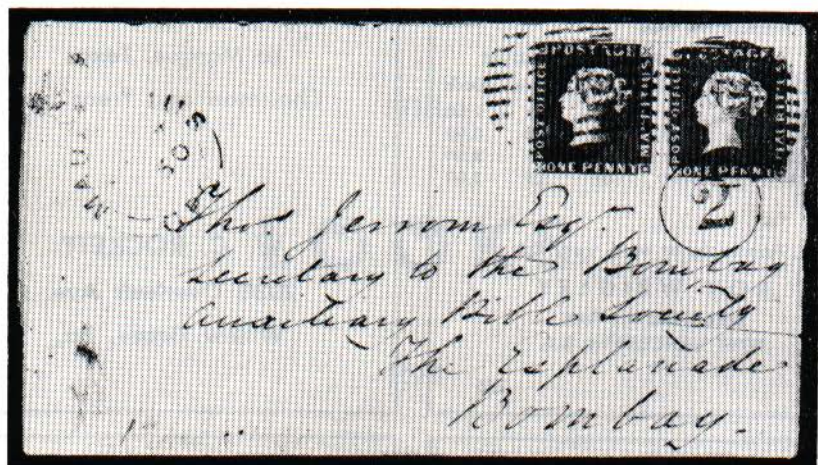 POSTAGE
POST OFFICE
MAURITIUS
ONE PENNY
POSTAGE
POST OFFICE
MAURITIUS
ONE PENNY
2
Thos. Jerrom Esqr.
Secretary to the Bombay
Auxiliary Bible Society
The Esplanade
Bombay.